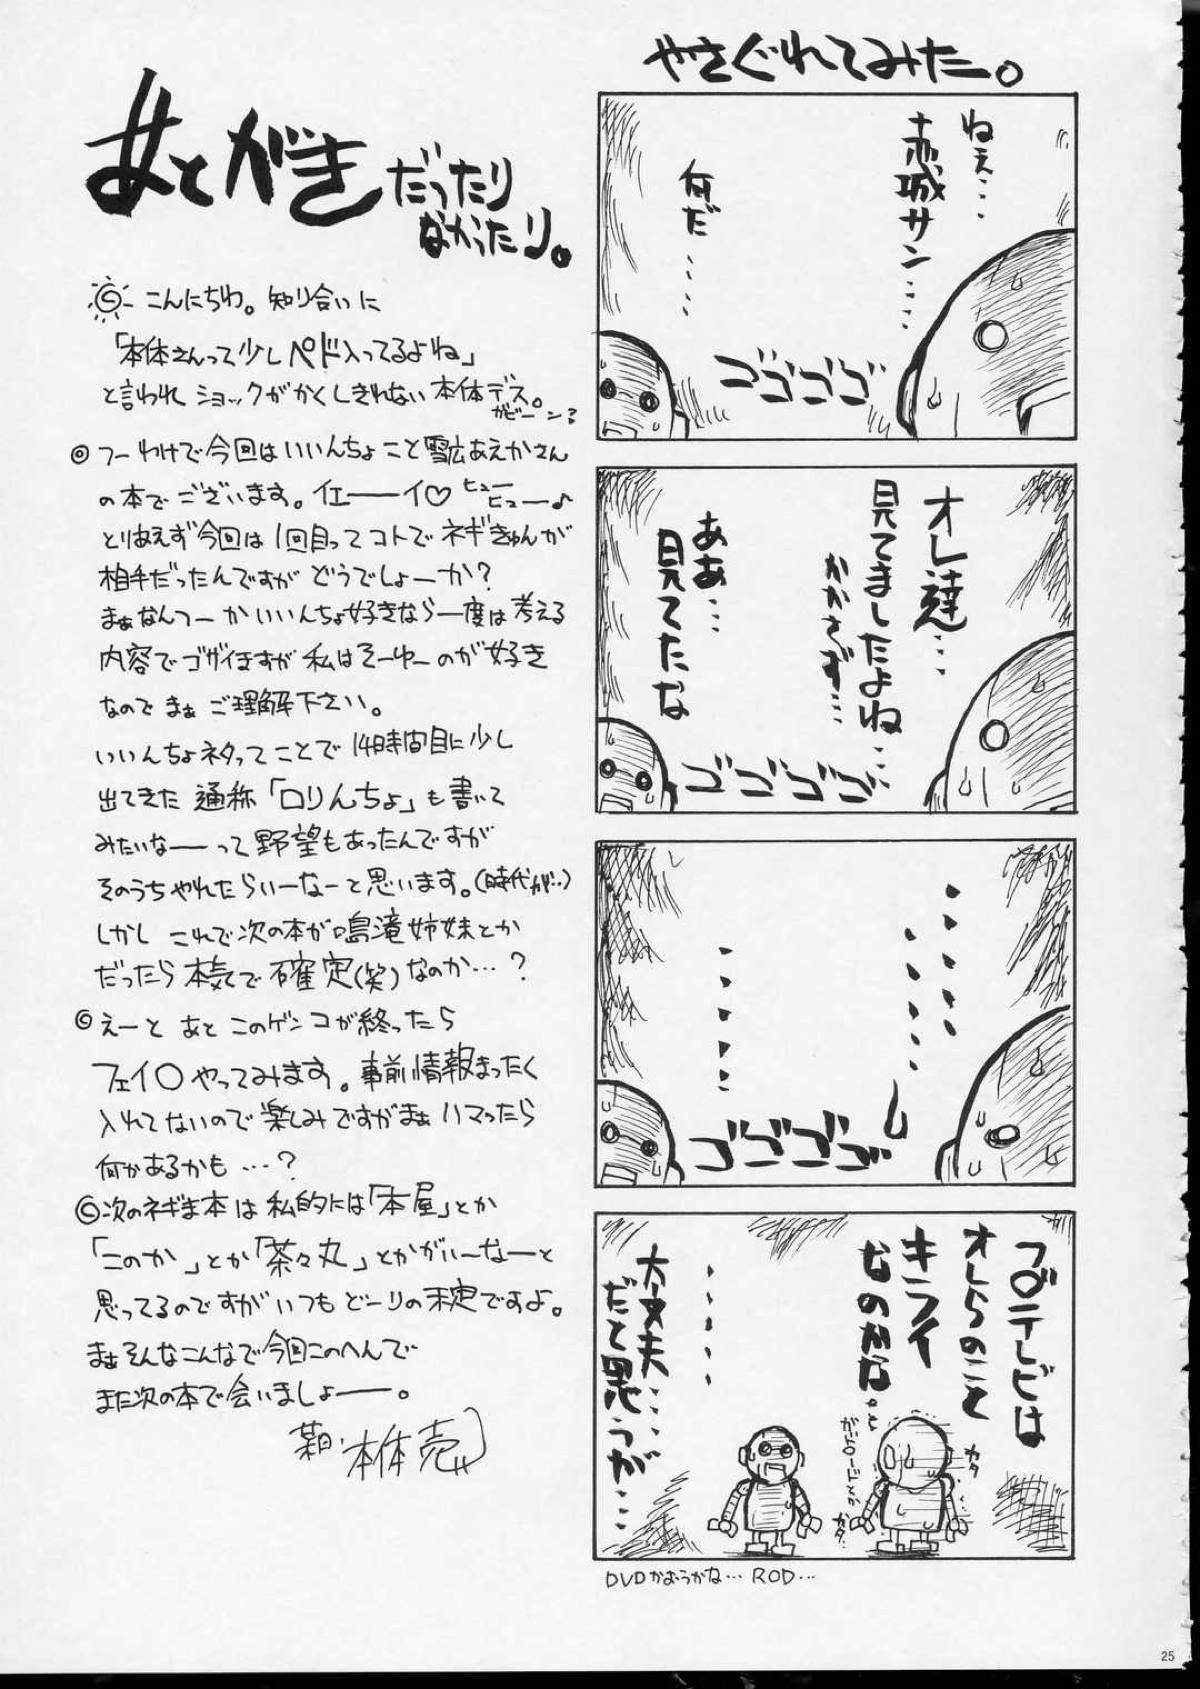 やさぐれてみた。
ねぇ…
赤城サン…
何だ…
ゴゴゴゴ
オレ達…
見てましたよね…
かかさず…
ああ…
見てたな
ゴゴゴゴ
ゴゴゴゴ
プ〇テレビは
オレらのこと
キライ
なのかな。
カタ
カタ
大丈夫…
だと思うが…
DVDかおうかな… ROD…
あとがきだったり
なかったり。
こんにちわ。知り合いに
「本体さんって少しペド入ってるよね」
と言われショックがかくしきれない本体デス。
ガビーン
◎つーわけで今回はいいんちょこと雪広あえかさん
の本でございます。イエーーイ♡ ヒュー
ヒュー♪
とりあえず今回は1回目ってコトでネギきゅんが
相手だったんですがどうでしょーか?
まぁなんつーかいいんちょ好きなら一度は考える
内容でゴザイますが私はそーゆーのが好き
なのでまぁご理解下さい。
いいんちょネタってことで14時間目に少し
出てきた通称「ロりんちょ」も書いて
みたいなーって野望もあったんですが
そのうちやれたらいーなーと思います。(時代が…)
しかしこれで次の本が鳴滝姉妹とか
だったら本気で確定(笑)なのか…?
◎えーとあとこのゲンコが終ったら
フェイ〇やってみます。事前情報まったく
入れてないので楽しみですがまぁハマったら
何かあるかも…?
◎次のネギま本は私的には「本屋」とか
「このか」とか「茶々丸」とかがいーなーと
思ってるのですがいつもどーりの未定ですよ。
まぁそんなこんなで今回このへんで
また次の本で会いましょーー。
本体売
25